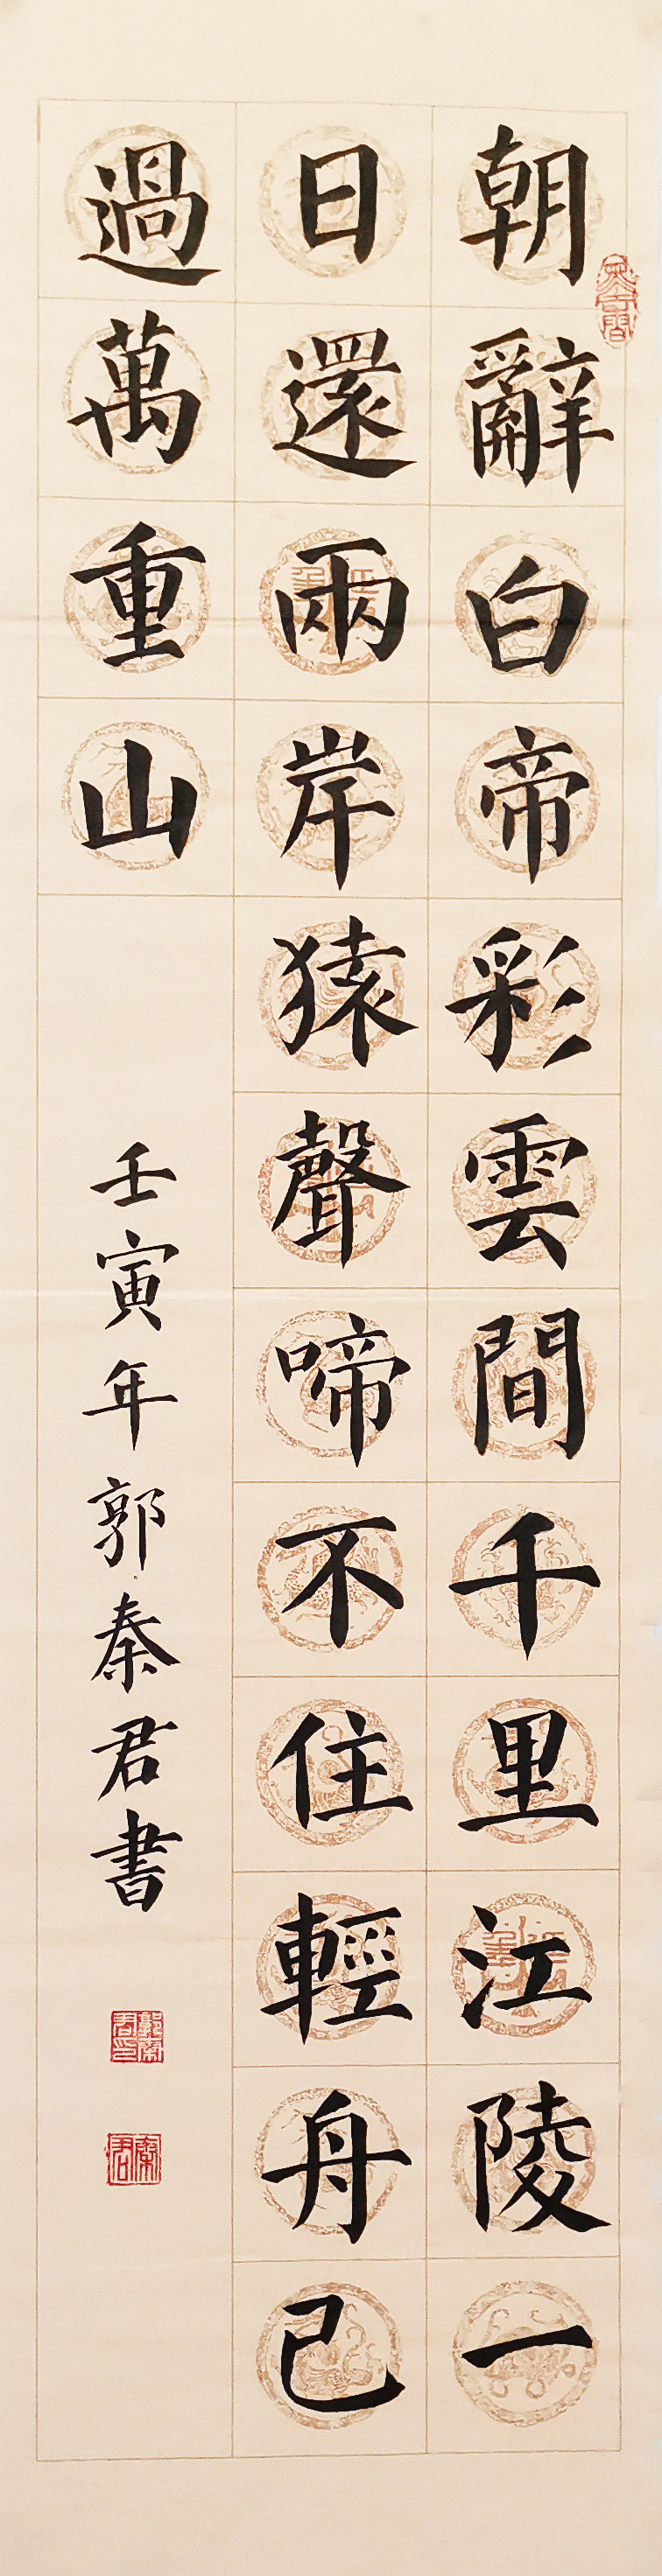 朝辭白帝彩雲間千里江陵一
日還兩岸猿聲啼不住輕舟已
過萬重山
壬寅年郭秦君書
郭秦君印
秦君